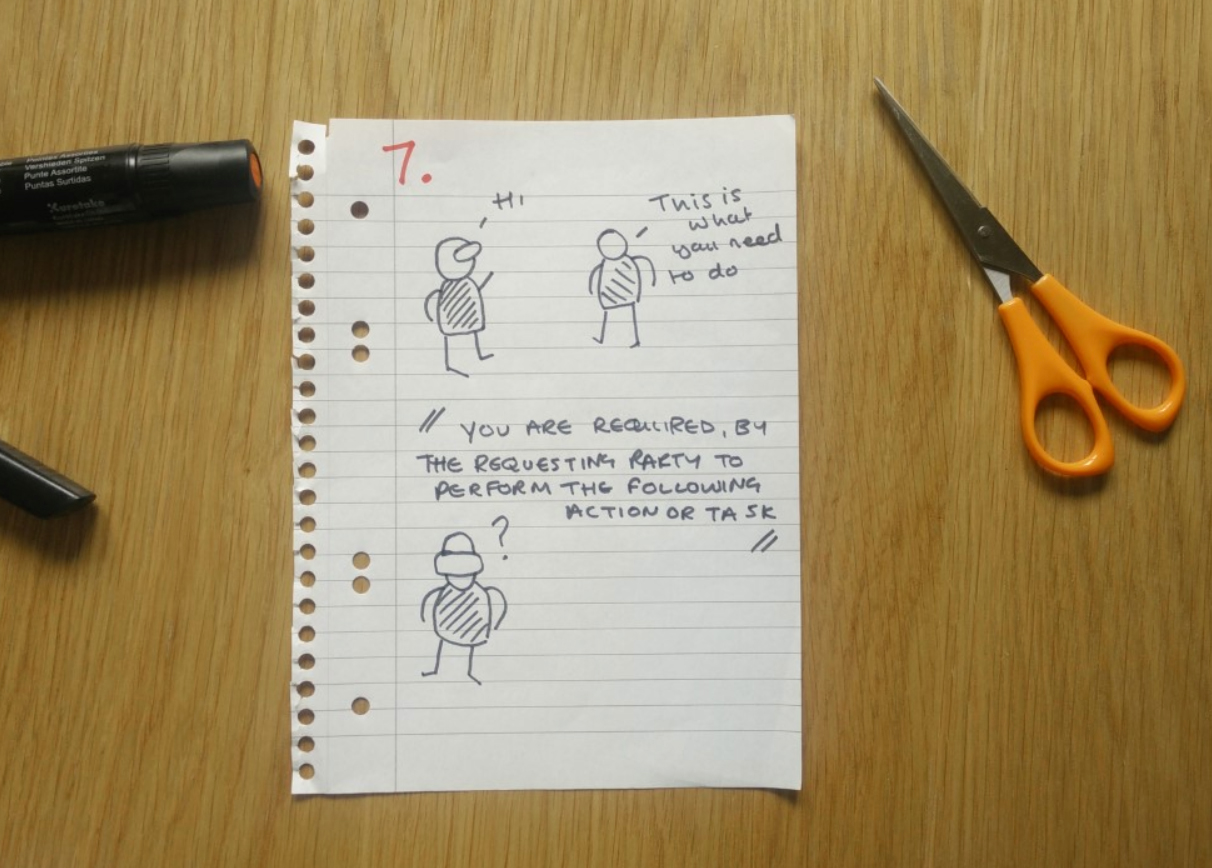 Pointes Assorties
Verschieden Spitzen
Punte Assortite
Puntas Surtidas
Kuretake
7.
Hi
This is
what
you need
to do
" YOU ARE REQUIRED, BY
THE REQUESTING PARTY TO
PERFORM THE FOLLOWING
ACTION OR TASK
"
?